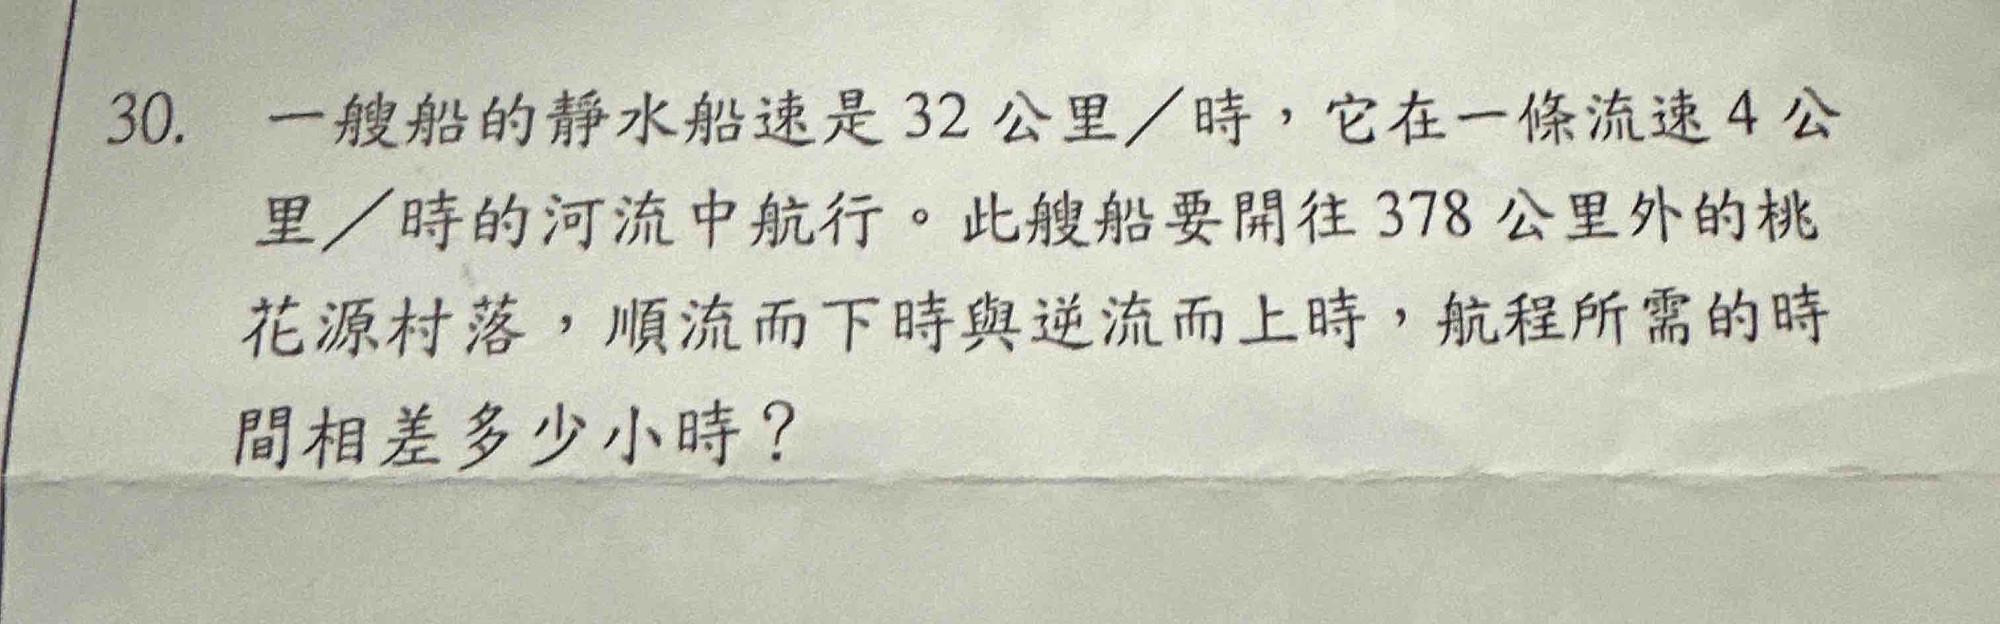 30. 一艘船的靜水船速是 32 公里／時，它在一條流速 4 公
里／時的河流中航行。此艘船要開往 378 公里外的桃
花源村落，順流而下時與逆流而上時，航程所需的時
間相差多少小時？